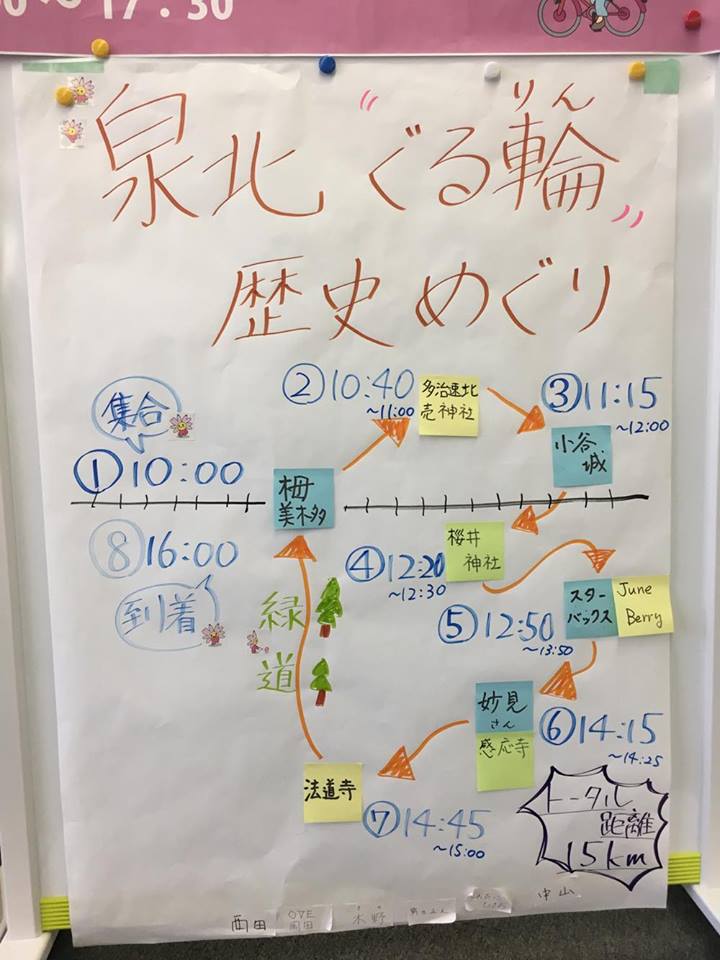 〜17:30
泉北 "ぐる輪"
りん
歴史めぐり
集合
①10:00
②10:40
〜11:00
多治速比
売神社
③11:15
〜12:00
小谷
城
栂
美木多
④12:20
〜12:30
桜井
神社
⑤12:50
〜13:50
スター
バックス
June
Berry
⑥14:15
〜14:25
妙見
さん
感応寺
⑦14:45
〜15:00
法道寺
緑
道
⑧16:00
到着
トータル
距離
15km
西田
OVE
岡田
木野
中山